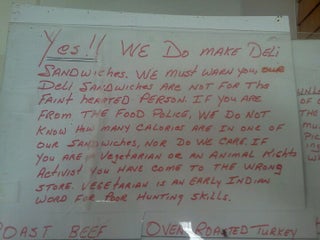 Yes!! WE DO MAKE DELI
SANDWICHES. WE MUST WARN YOU, OUR
DELI SANDWICHES ARE NOT FOR THE
FAINT HEARTED PERSON. IF YOU ARE
FROM THE FOOD POLICE, WE DO NOT
KNOW HOW MANY CALORIES ARE IN ONE
OF OUR SANDWICHES, NOR DO WE CARE. IF
YOU ARE A VEGETARIAN OR AN ANIMAL RIGHTS
ACTIVIST YOU HAVE COME TO THE WRONG
STORE. VEGETARIAN IS AN EARLY INDIAN
WORD FOR POOR HUNTING SKILLS.
ROAST BEEF
OVEN ROASTED TURKEY